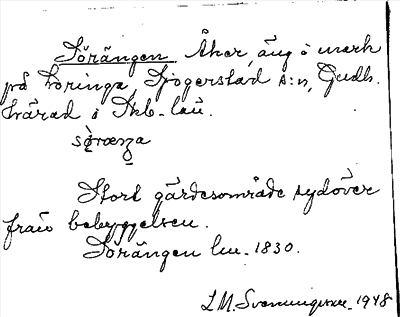 Sörängen Åker, äng o mark
på Loringa, Sjogerstad s:n, Gudh.
härad i Skb-län.
Stort gärdesområde sydöver
från bebyggelsen.
Sörängen lm. 1830.
L M. Svenungsson. 1948